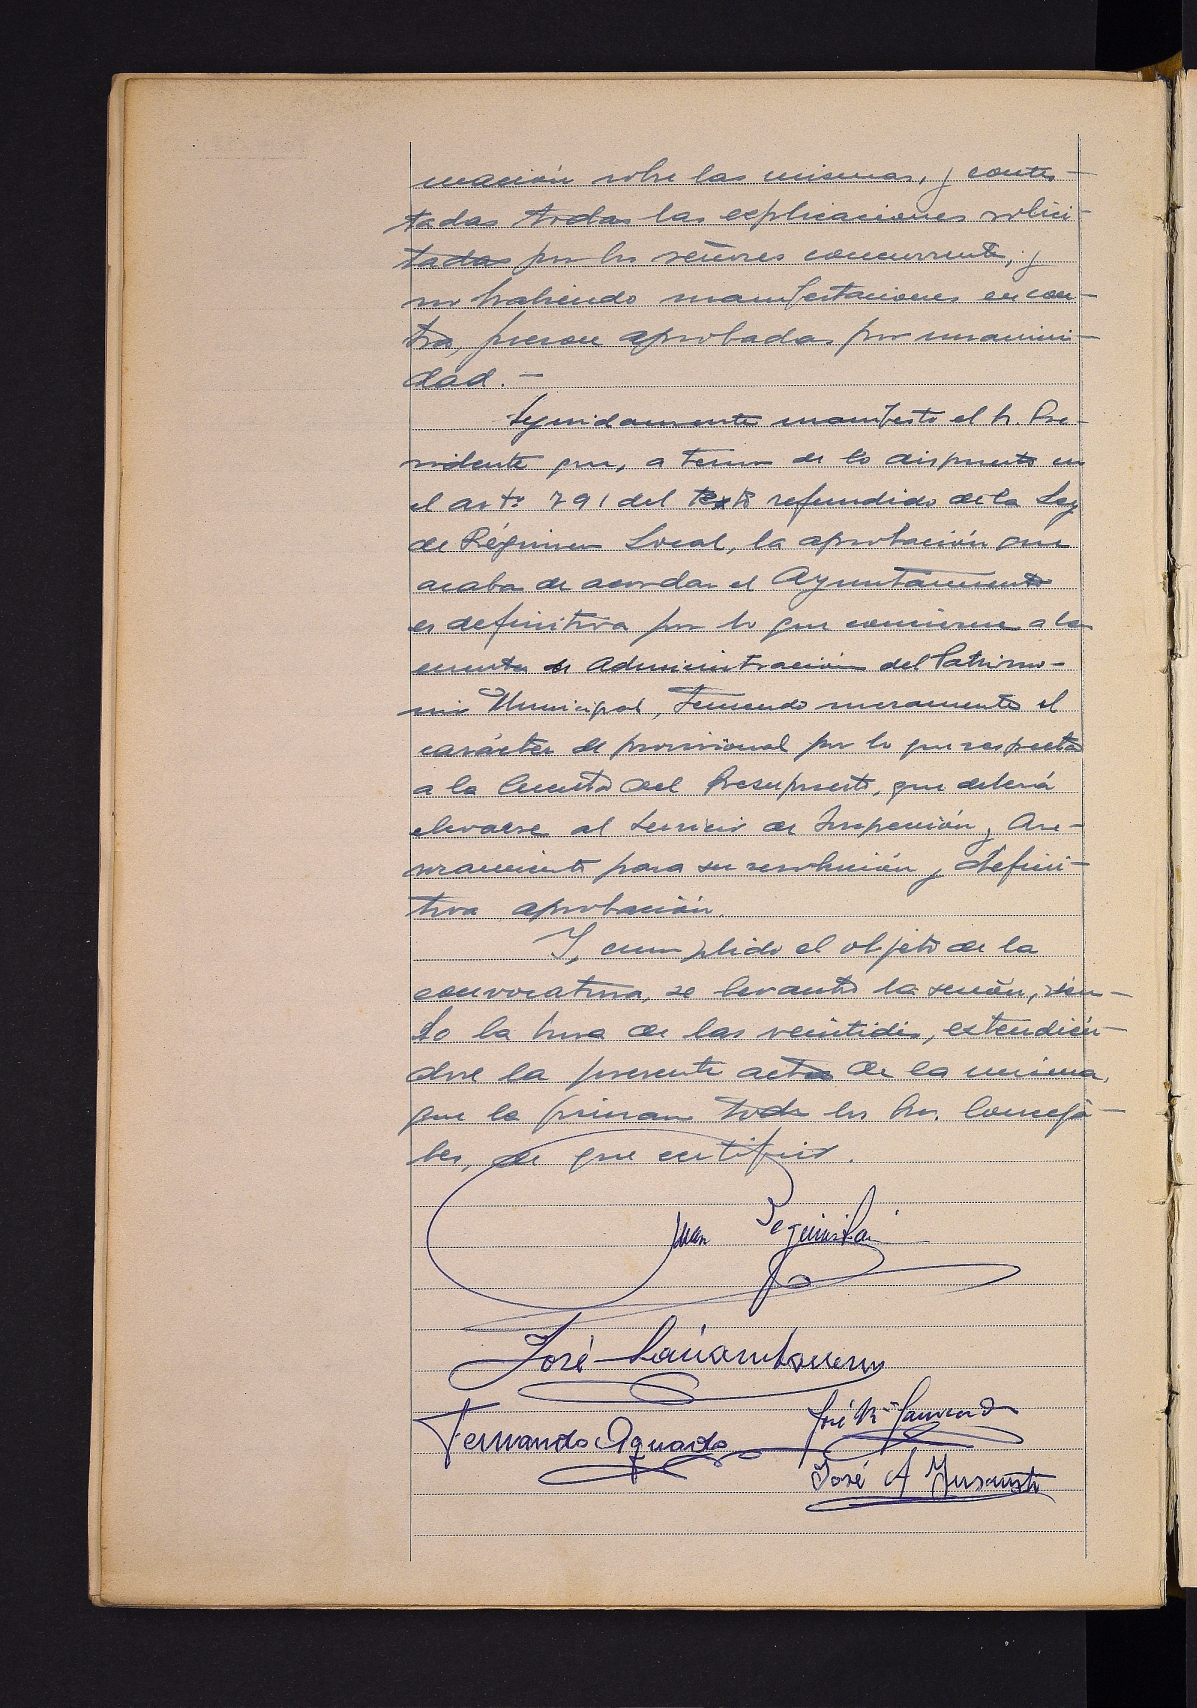 mación sobre las mismas, y contes-
tadas todas las explicaciones solici-
tadas por los señores concurrente, y
no habiendo manifestaciones en con-
tra, fueron aprobadas por unanimi-
dad. -
Seguidamente manifestó el Sr. Pre-
sidente que, a tenor de lo dispuesto en
el artº 791 del texto refundido de la Ley
de Régimen Local, la aprobación que
acaba de acordar el Ayuntamiento
es definitiva por lo que concierne a la
cuenta de Administración del Patrimo-
nio Municipal, teniendo meramente el
carácter de provisional por lo que respecta
a la Cuenta del Presupuesto, que deberá
elevarse al Servicio de Inspección y Ase-
soramiento para su resolución y defini-
tiva aprobación.
Y, cumplido el objeto de la
convocatoria, se levantó la sesión, sien-
do la hora de las veintidós, extendién-
dose la presente acta de la misma,
que la firman todos los Srs. Conceja-
les, de que certifico.
Juan
José
Fernando Aguado
José Mª
José A